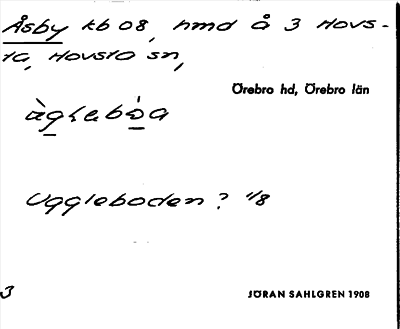 Åsby kb 08, hmd å 3 Hovs-
ta, Hovsta sn,
Örebro hd, Örebro län
Uggleboden? 1/8
3
JÖRAN SAHLGREN 1908